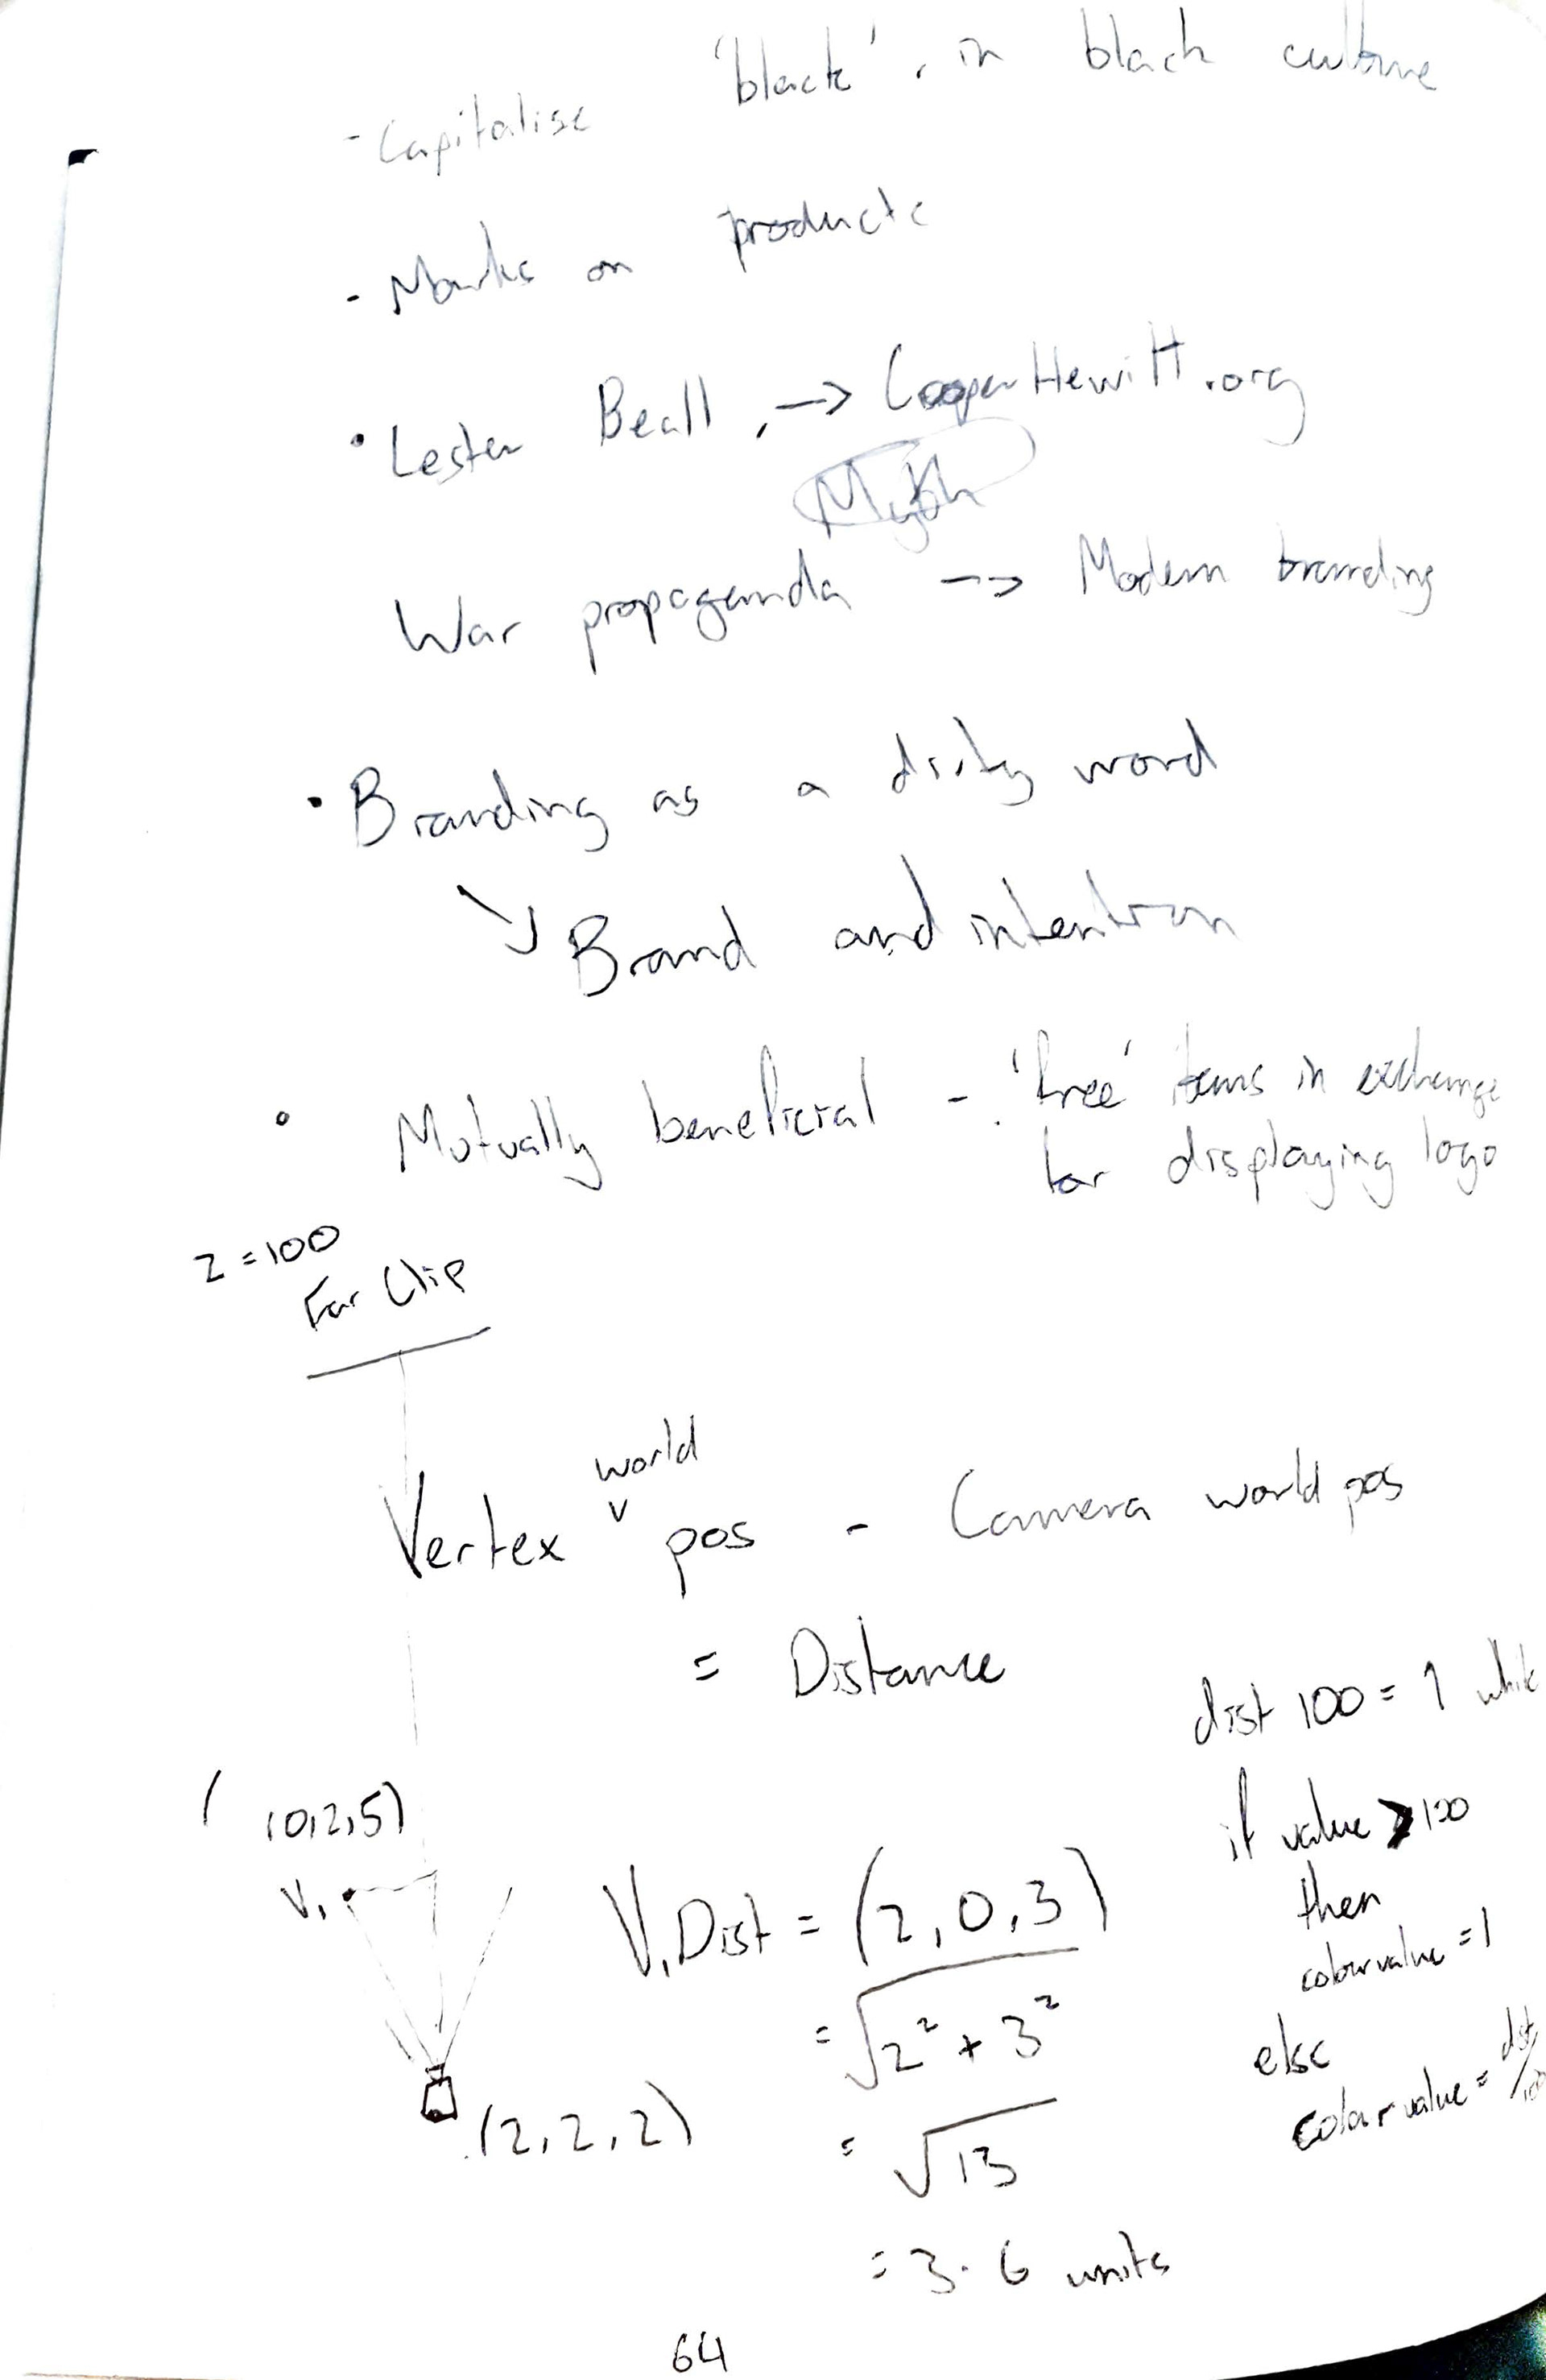 - Capitalise 'black' in black culture
- Marks on products
• Lester Beall, --> CooperHewitt.org
Myth
War propaganda --> Modern branding
• Branding as a dirty word
Brand and intention
• Mutually beneficial - 'free' items in exchange
for displaying logo
z = 100
Far Clip
world
Vertex v pos - Camera world pos
= Distance
dist 100 = 1 white
if value > 100
then
colour value = 1
else
colour value = dist/100
(0,2,5)
V₁
V₁Dist = (2, 0, 3)
= √2² + 3²
(2, 2, 2)
= √13
= 3.6 units
64